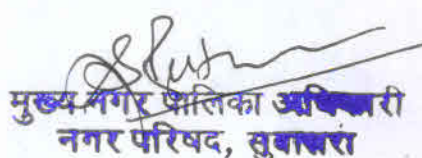 मुख्य नगर पालिका अधिकारी
नगर परिषद, सुवासरा